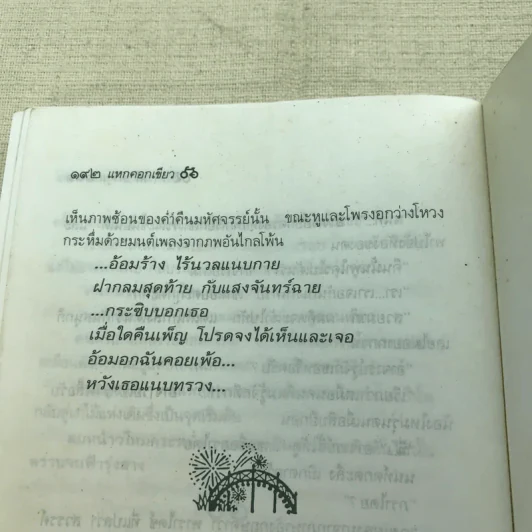 ๑๙๒ แทกคอกเขียว
เห็นภาพซ้อนของค่ำคืนมหัศจรรย์นั้น ขณะหูและโพรงอกว่างโหวง
กระหึ่มด้วยมนต์เพลงจากภพอันไกลโพ้น
...อ้อมร้าง ไร้นวลแนบกาย
ฝากลมสุดท้าย กับแสงจันทร์ฉาย
...กระซิบบอกเธอ
เมื่อใดคืนเพ็ญ โปรดจงได้เห็นและเจอ
อ้อมอกฉันคอยเพ้อ...
หวังเธอแนบทรวง...